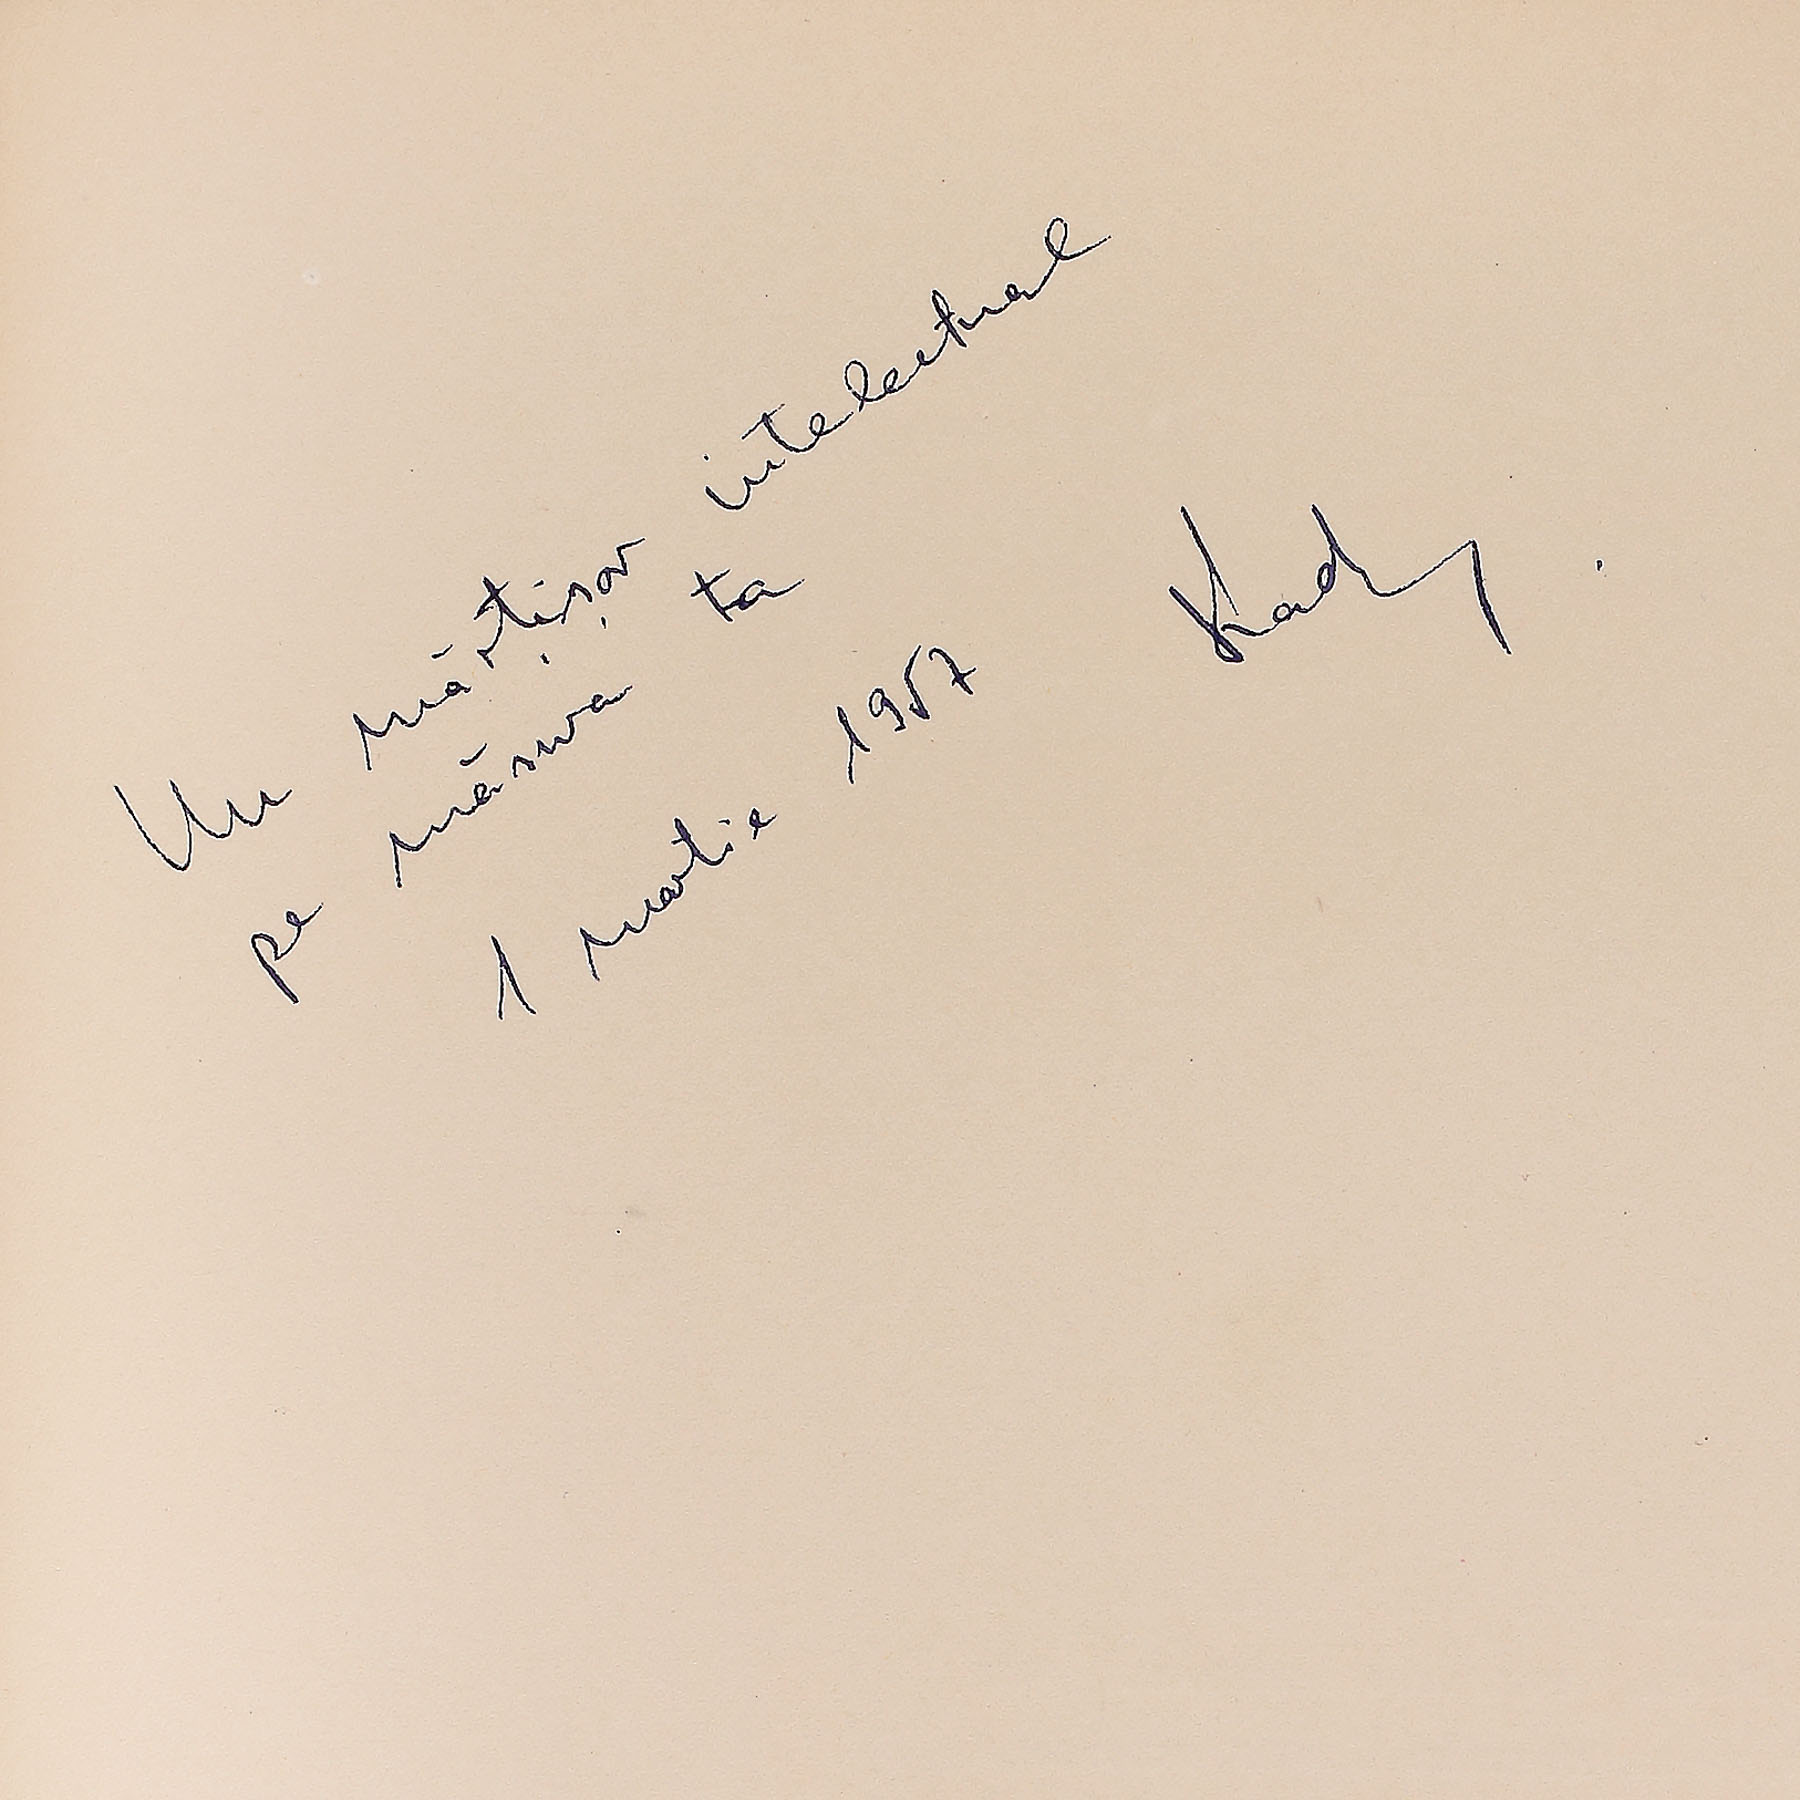 Un mărțișor intelectual
pe măsura ta
1 martie 1957
Kady